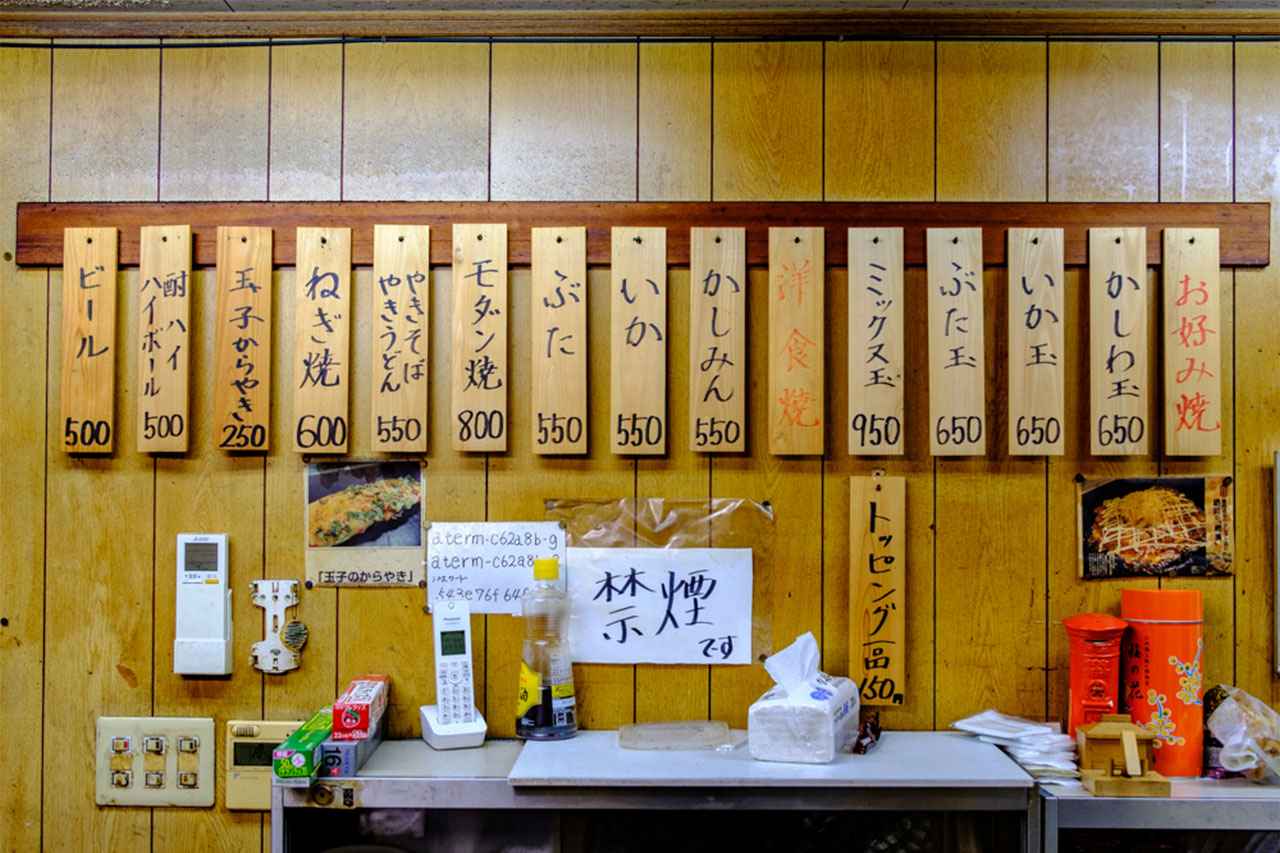 お好み焼
かしわ玉
650
いか玉
650
ぶた玉
650
ミックス玉
950
洋食焼
かしみん
550
いか
550
ぶた
550
モダン焼
800
やきそば
やきうどん
550
ねぎ焼
600
玉子からやき
250
酎ハイ
ハイボール
500
ビール
500
トッピング一品
150円
「玉子のからやき」
aterm-c62a8b-g
aterm-c62a8b
禁煙
です